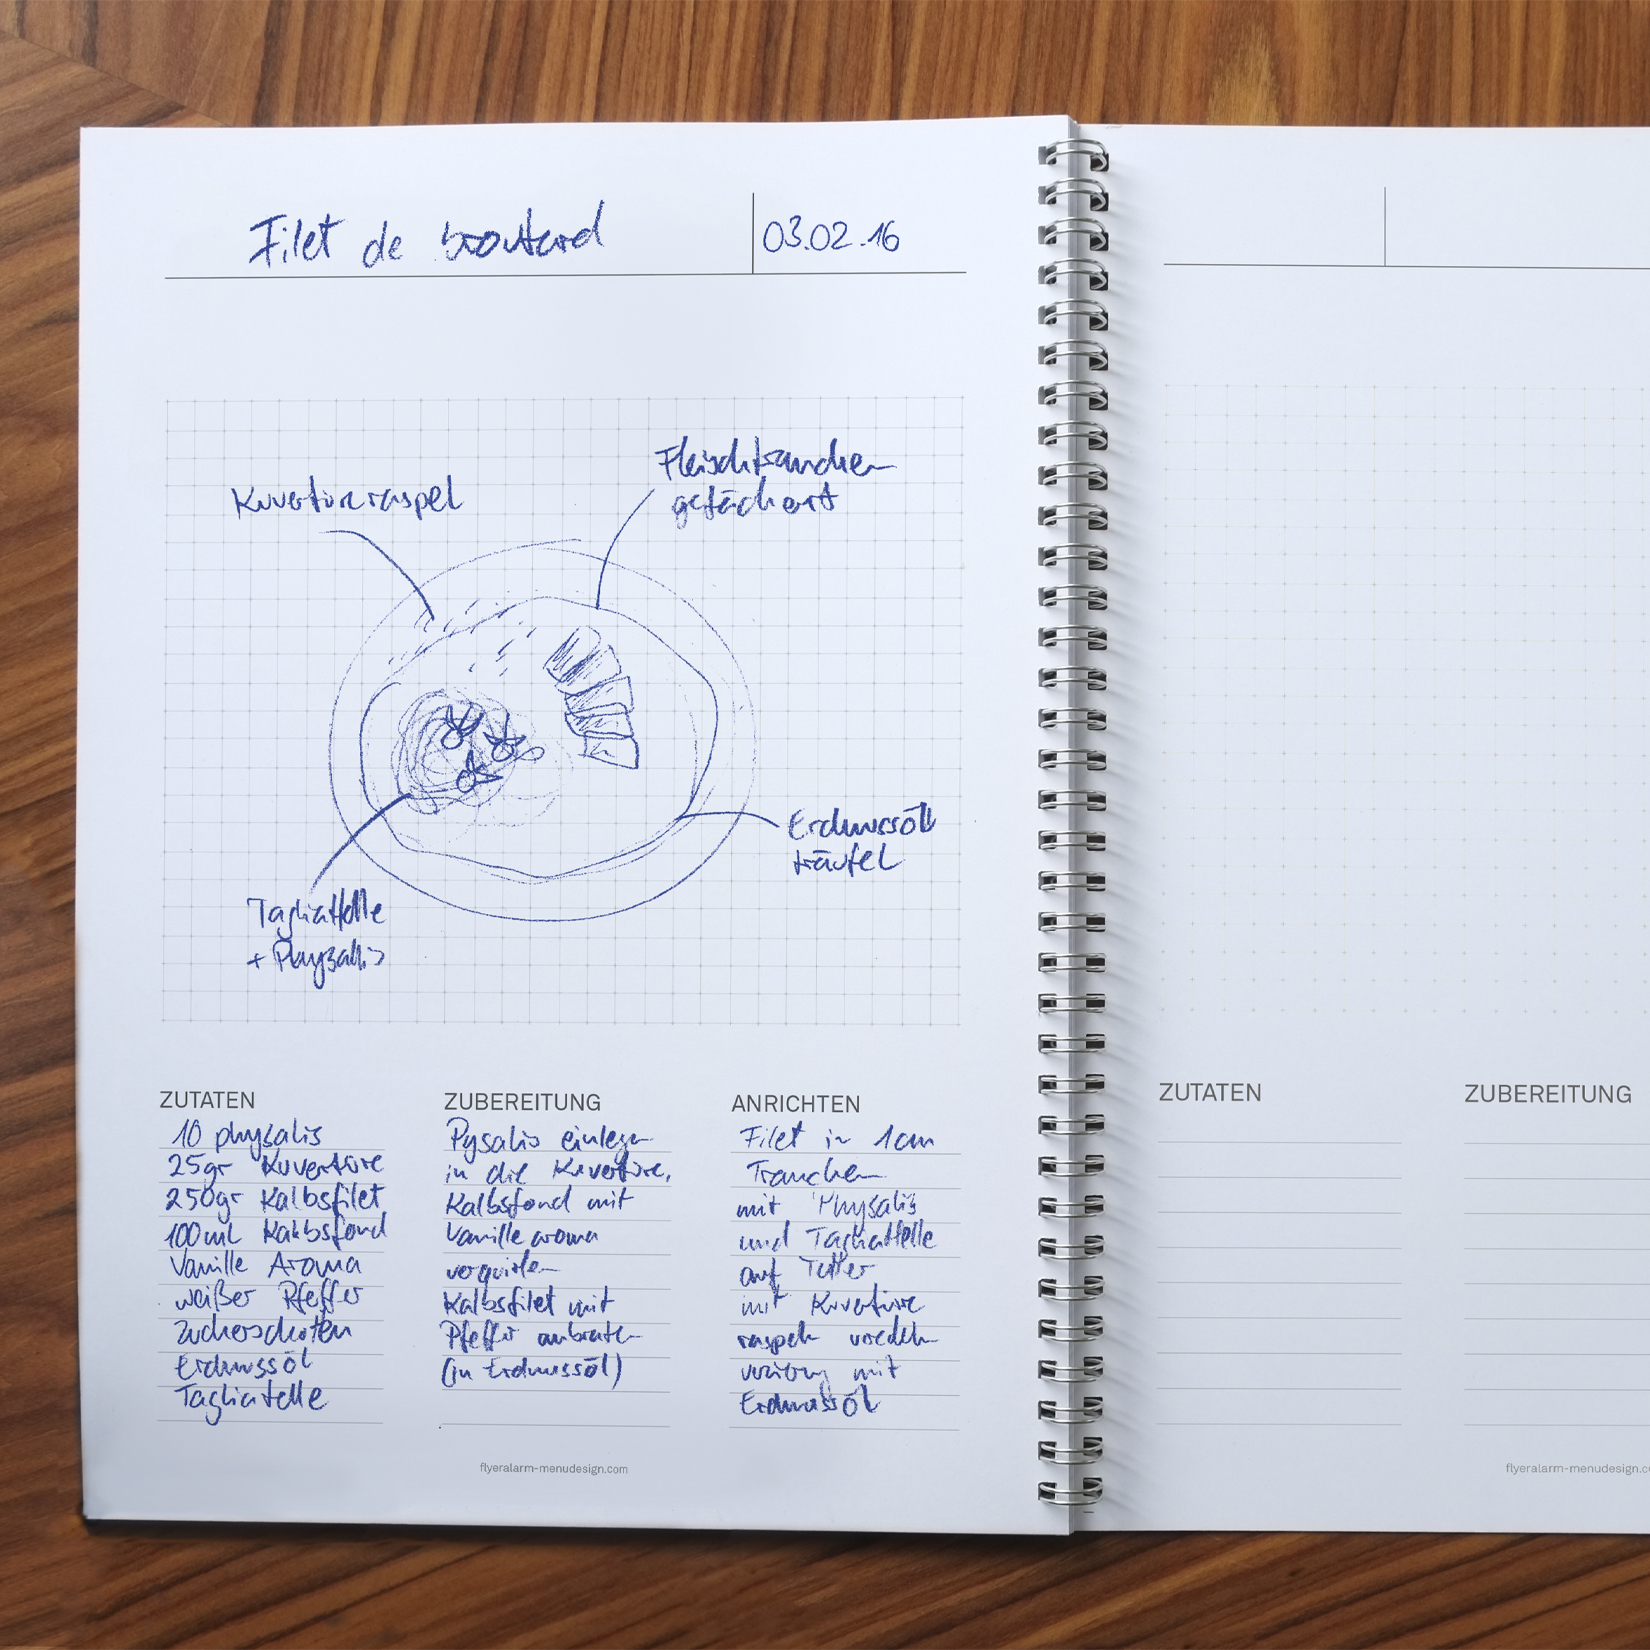 Filet de broutard
03.02.16
Kuvertüreraspel
Fleischtranchen
gefächert
Erdnussöl
träufel
Tagliattelle
+ Physalis
ZUTATEN
10 physalis
25gr Kuvertüre
250gr Kalbsfilet
100ml Kalbsfond
Vanille Aroma
weißer Pfeffer
Zuckerschoten
Erdnussöl
Tagliatelle
ZUBEREITUNG
Pysalis einlegen
in die Kuvertüre,
Kalbsfond mit
Vanille aroma
verquirlen
Kalbsfilet mit
Pfeffer anbraten
(in Erdnussöl)
ANRICHTEN
Filet in 1cm
Tranchen
mit Physalis
und Tagliattelle
auf Teller
mit Kuvertüre
raspeln veredeln
mit
Erdnussöl
flyeralarm-menudesign.com
ZUTATEN
ZUBEREITUNG
flyeralarm-menudesign.co